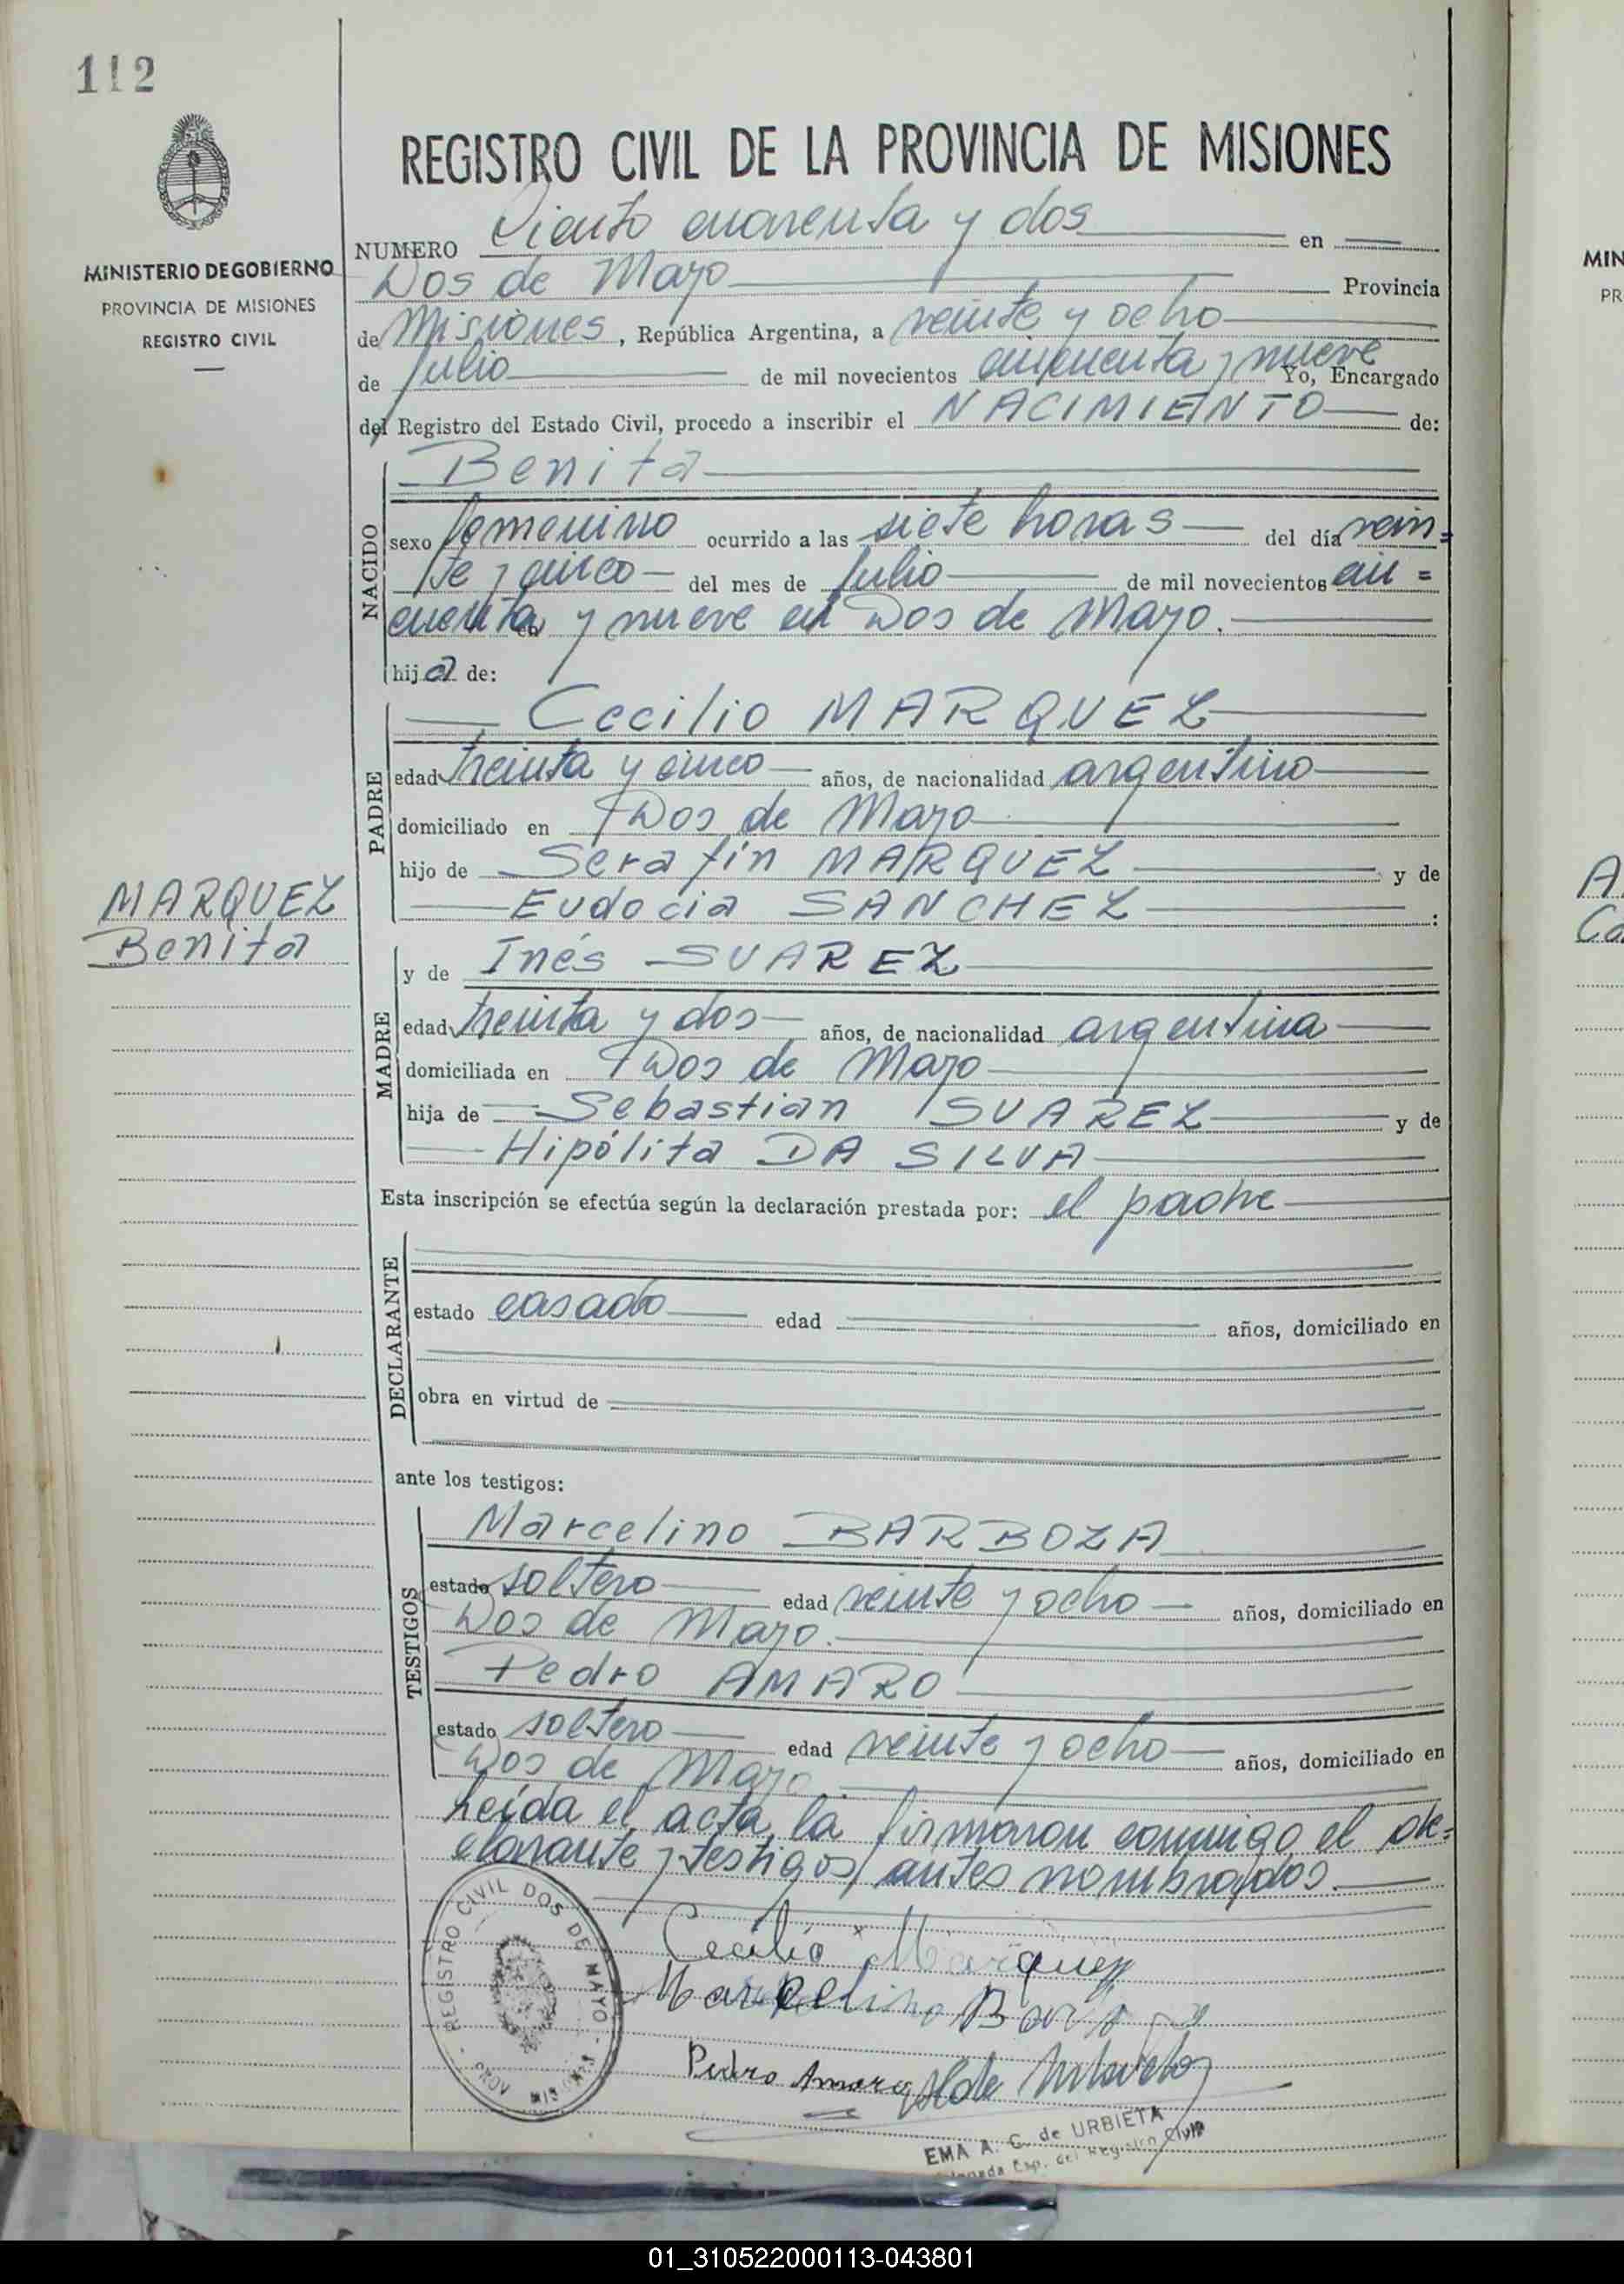 112
MINISTERIO DE GOBIERNO
PROVINCIA DE MISIONES
REGISTRO CIVIL
REGISTRO CIVIL DE LA PROVINCIA DE MISIONES
NUMERO Ciento cuarenta y dos en
Dos de Mayo Provincia
de Misiones, República Argentina, a veinte y ocho
de Julio de mil novecientos cincuenta y nueve Yo, Encargado
del Registro del Estado Civil, procedo a inscribir el NACIMIENTO de:
NACIDO
Benita
sexo femenino ocurrido a las siete horas del día vein=
te y cinco del mes de Julio de mil novecientos cin=
cuenta y nueve en Dos de Mayo.
hija de:
PADRE
Cecilio MARQUEZ
edad treinta y cinco años, de nacionalidad argentino
domiciliado en Dos de Mayo
hijo de Serafín MARQUEZ y de
Eudocia SANCHEZ :
MARQUEZ
Benita
MADRE
y de Inés SUAREZ
edad treinta y dos años, de nacionalidad argentina
domiciliada en Dos de Mayo
hija de Sebastian SUAREZ y de
Hipólita DA SILVA
Esta inscripción se efectúa según la declaración prestada por: el padre
DECLARANTE
estado casado edad años, domiciliado en
obra en virtud de
ante los testigos:
TESTIGOS
Marcelino BARBOZA
estado soltero edad veinte y ocho años, domiciliado en
Dos de Mayo.
Pedro AMARO
estado soltero edad veinte y ocho años, domiciliado en
Dos de Mayo.
Leída el acta, la firmaron conmigo el de=
clarante y testigos antes nombrados.
REGISTRO CIVIL DOS DE MAYO
Cecilio Marquez
Marcelino
Pedro Amaro
EMA A. C. de URBIETA
Esp. del Registro Civil
MIN
PR
A
Ca
01_310522000113-043801